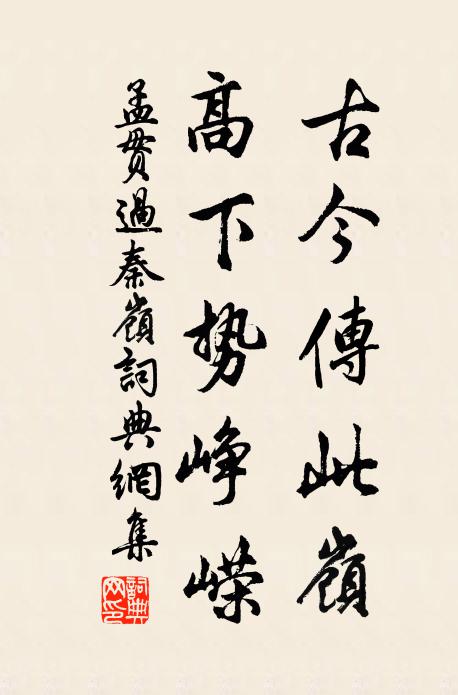 古今傳此嶺
高下勢崢嶸
孟貫過秦嶺詞典網集
詞典網印